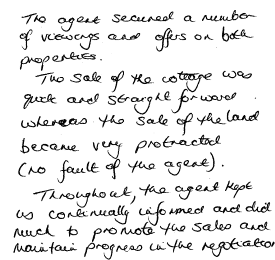 The agent secured a number
of viewings and offers on both
properties.
The sale of the cottage was
quick and straight forward
whereas the sale of the land
became very protracted
(no fault of the agent).
Throughout, the agent kept
us continually informed and did
much to promote the sales and
maintain progress in the negotiation